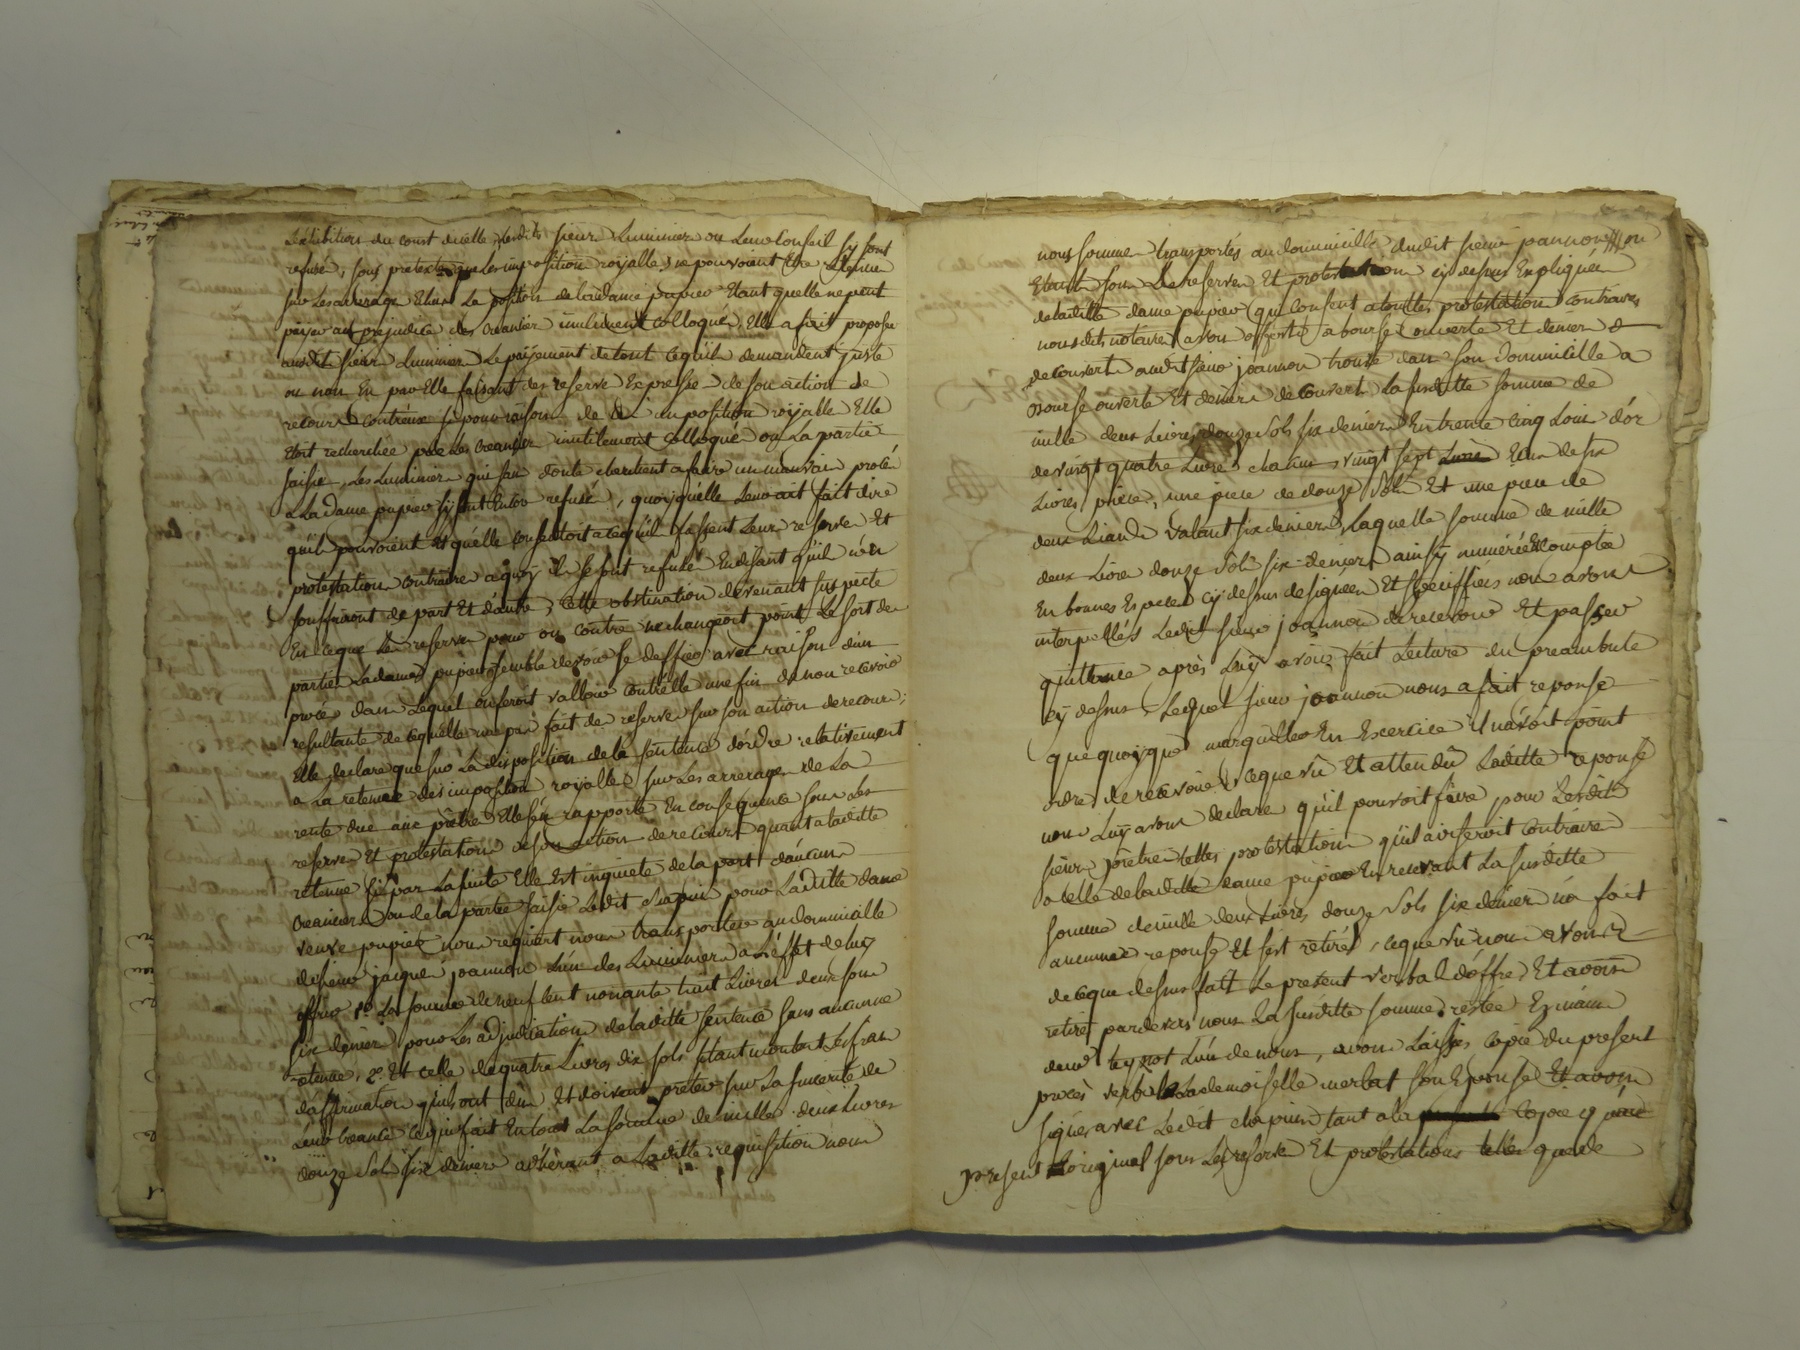 exhibition du court duelle, lesdits sieurs Luminiers ou Leur Conseil sy sont
refusé, sous pretexte que les imposition royalle, ne pouvoient Etre retenue
sur Les arrerage Et sur La position de ladame pupier Etant quelle ne peut
payer au prejudice des Creancier inutilement Colloquér, Elle a fait proposer
ausdit sieurs Luminier Le payement de tout Ce quils demandent juste
ou non En par Elle faisant des reserve Expresse de son action de
recours Contreux si pour raison de la imposition royalle Elle
Etoit recherchée par Les Creancier inutilement Colloqué ou La partie
saisie, Les Luminier qui sans doute cherchent a faire un mauvais procés
a La dame pupier sy sont Encor refusé, quoyquélle Leur ait fait dire
quils pouvoient Et quélle consentoit a Cequils fassent Leurs reserve Et
protestation Contraire aquoy ils se sont refusé En disant quil nén
souffriront de part Et dautre, Cette obstination devenant suspecte
En ceque Les reserve pour ou contre ne changeoit point Le sort des
partie Ladame pupier semble devoir se deffier avec raison dun
procés dans Lequel on feroit valloir Contrélle une fin de non recevoir
resultante de cequélle na pas fait de reserve sur son action de recours;
Elle declare que sur La disposition de la sentence dórdre relativement
a La retenue des imposition royalle sur Les arrerages de La
rente due aux prétre Elle sén rapporte En consequence sous ses
reserve Et protestation de son action de recours quant a ladite
retenue si par La suite Elle Est inquiete de la part daucun
Creancier ou de la partie saisie Ledit chapuis pour Laditte dame
veuve pupier nous requiert nous transporter au domicille
du sieur jacques joannon Lún des Luminier a léffet de luy
offrir 1º La somme de neuf Cent nonante huit Livres deux sous
six dénier pour Les adjudication de laditte sentence sans aucune
retenue, 2º Et celle de quatre Livres dix sols montant Les frais
daffirmation qui sont dûs Et doivent préter sur La sincerité de
Leur Creance Cequi fait En tout La somme de mille deux Livres
douze sols six deniers adhérant a Laditte requisition nous
nous sommes transportés au domicille dudit sieur joannon ou
Etant sous Les reserve Et protestation cy dessus Expliquée
de laditte dame pupier qui Consent a toutte protestation Contraires
nous dits notaire avons offerts a bourse ouverte Et denier d
decouvert audit sieur joannon trouvé dans son domicille a
bourse ouverte Et denier decouvert La susditte somme de
mille deux Livres douze sols six denier En trente Cinq Louis dór
de vingt quatre Livre chacun, vingt sept Ecus de six
Livres piéce, une piece de douze sols Et une piece de
deux Liards valant six denier, Laquelle somme de mille
deux Livres douze sols six denier ainsy numérée Et comptée
En bonnes Espece cy dessus designées Et specifiées nous avons
interpellés Ledit sieur joannon de recevoir Et passer
quittance aprés Luy avoir fait Lecture du preambule
cy dessus, Lequel sieur joannon nous a fait reponse
que quoyque marguillier En Exercice il navoit point
ordre de recevoir, Ceque vû Et attendû Laditte reponse
nous Luy avons declare quil pouvoit faire pour Lesdits
sieurs prétre telles protestation quil aviseroit Contraire
a celle de laditte dame pupier En recevant La susditte
somme de mille deux Livres douze sols six dénier na fait
aucune reponse Et sést retiré, Ceque vu nous avons
de ceque dessus fait Le present verbal dóffre, Et avons
retiré pardevers nous La susditte somme restée Ez mains
de m^e teynot Lún de nous, avons Laissé Copie du present
procés verbal a La demoiselle merlat son Epouse Et avons
signés avec Ledit chapuis tant a la Copie quau
present original sous Les reserve Et protestations telles que de